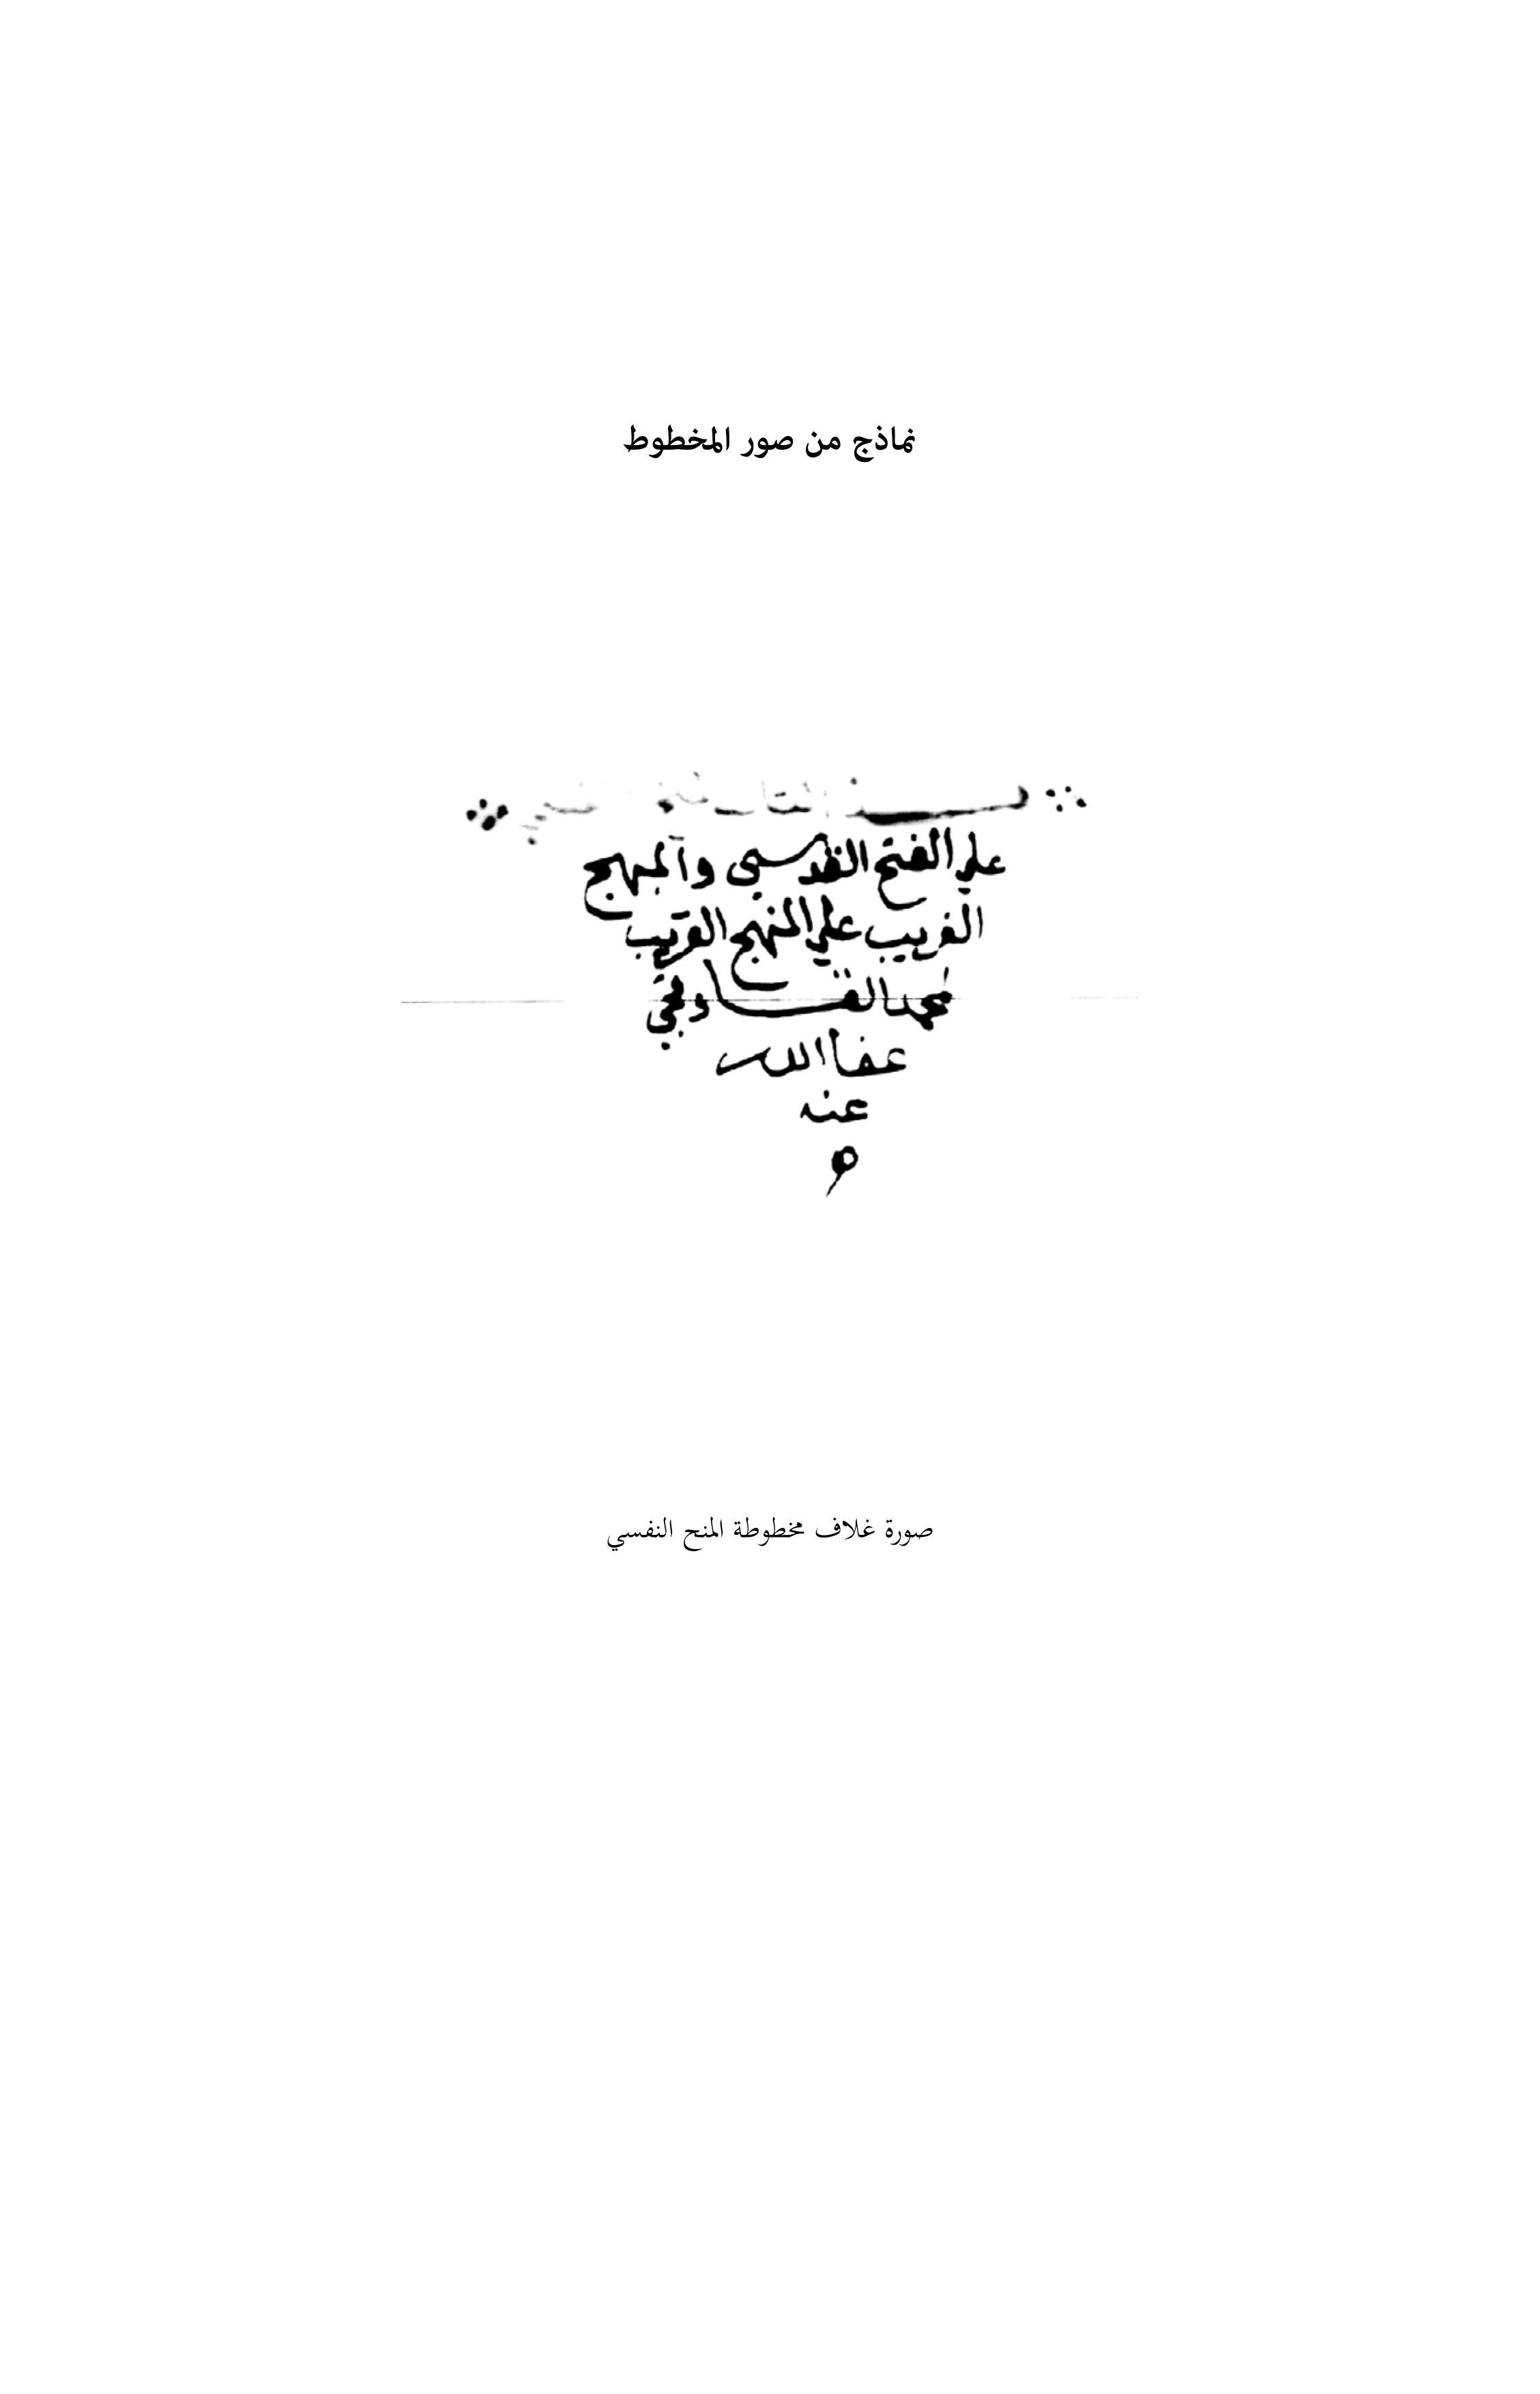 نماذج من صور المخطوط
علي الفتح القدسي والمبهج
الغريب علي المنهج القريب
لمحمد القاوقجي
عفا الله
عنه
صورة غلاف مخطوطة المنح النفسي